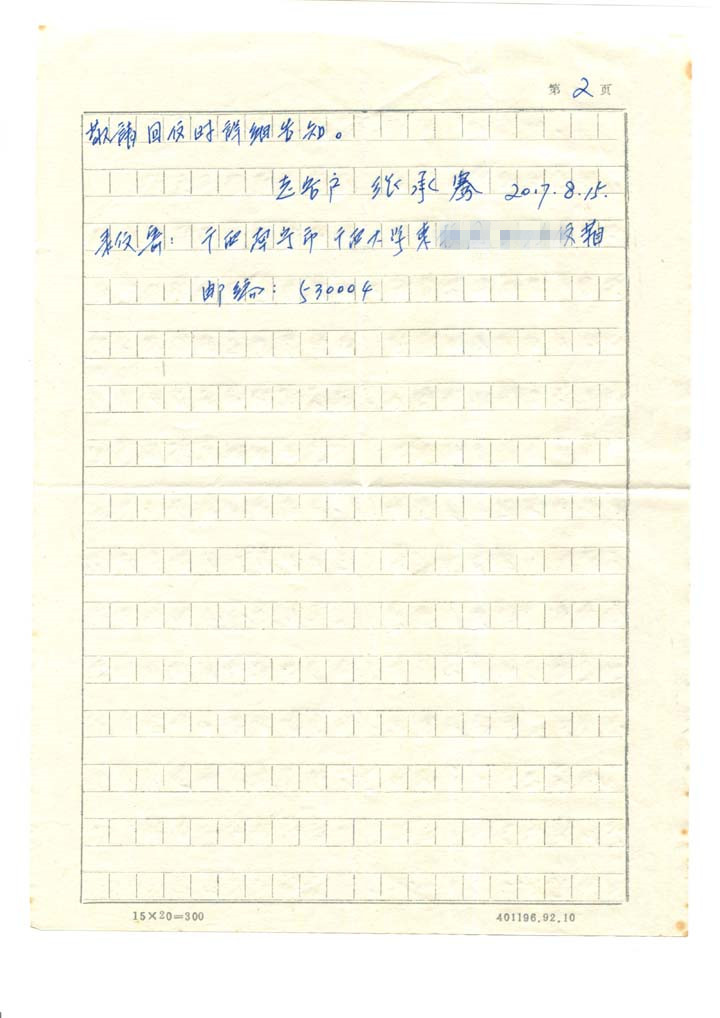 第 2 页
敬請回信时詳細告知。
老客户 张承寨 2017.8.15.
来信寄：广西南宁市广西大学東 收轉
邮编：530004
15×20=300
401196.92.10